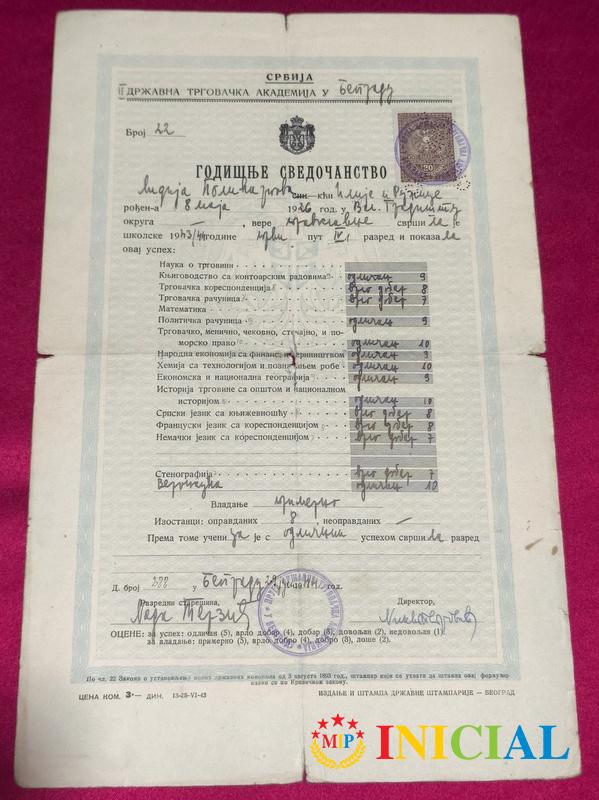 СРБИЈА
II ДРЖАВНА ТРГОВАЧКА АКАДЕМИЈА У Београду
Број 22
20
ГОДИШЊЕ СВЕДОЧАНСТВО
Лидија син кћи Илије и Ружице
рођен-а 8 маја 1926 год. у Вел.
округа — , вере православне сврши ла је
школске 1943/44 године први пут IV1 разред и показа ла
овај успех:
Наука о трговини
Књиговодство са контоарским радовима одличан 9
Трговачка кореспонденција врло добар 8
Трговачка рачуница врло добар 7
Математика
Политичка рачуница одличан 9
Трговачко, менично, чековно, стечајно, и по-
морско право одличан 10
Народна економија са финанс. одличан 9
Хемија са технологијом и познавањем робе одличан 10
Економска и национална географија одличан 9
Историја трговине са општом и националном
историјом одличан 10
Српски језик са књижевношћу врло добар 8
Француски језик са кореспонденцијом врло добар 8
Немачки језик са кореспонденцијом врло добар 7
Стенографија врло добар 7
Веронаука одличан 10
Владање примерно
Изостанци: оправданих 8, неоправданих —
Према томе учени ца је с одличним успехом сврши ла разред
Д. број у Београду год.
Разредни старешина, Директор,
ОЦЕНЕ: за успех: одличан (5), врло добар (4), добар (3), довољан (2), недовољан (1).
за владање: примерно (5), врло добро (4), добро (3), лоше (2).
По чл. 22 Закона о установљењу нових државних монопола од 3 августа 1893 год., штампар који се ухвати да штампа овај формулар
казни се по Кривичном закону.
ЦЕНА КОМ. 3·— ДИН. 13-28-VI-43 ИЗДАЊЕ И ШТАМПА ДРЖАВНЕ ШТАМПАРИЈЕ — БЕОГРАД
MP INICIAL